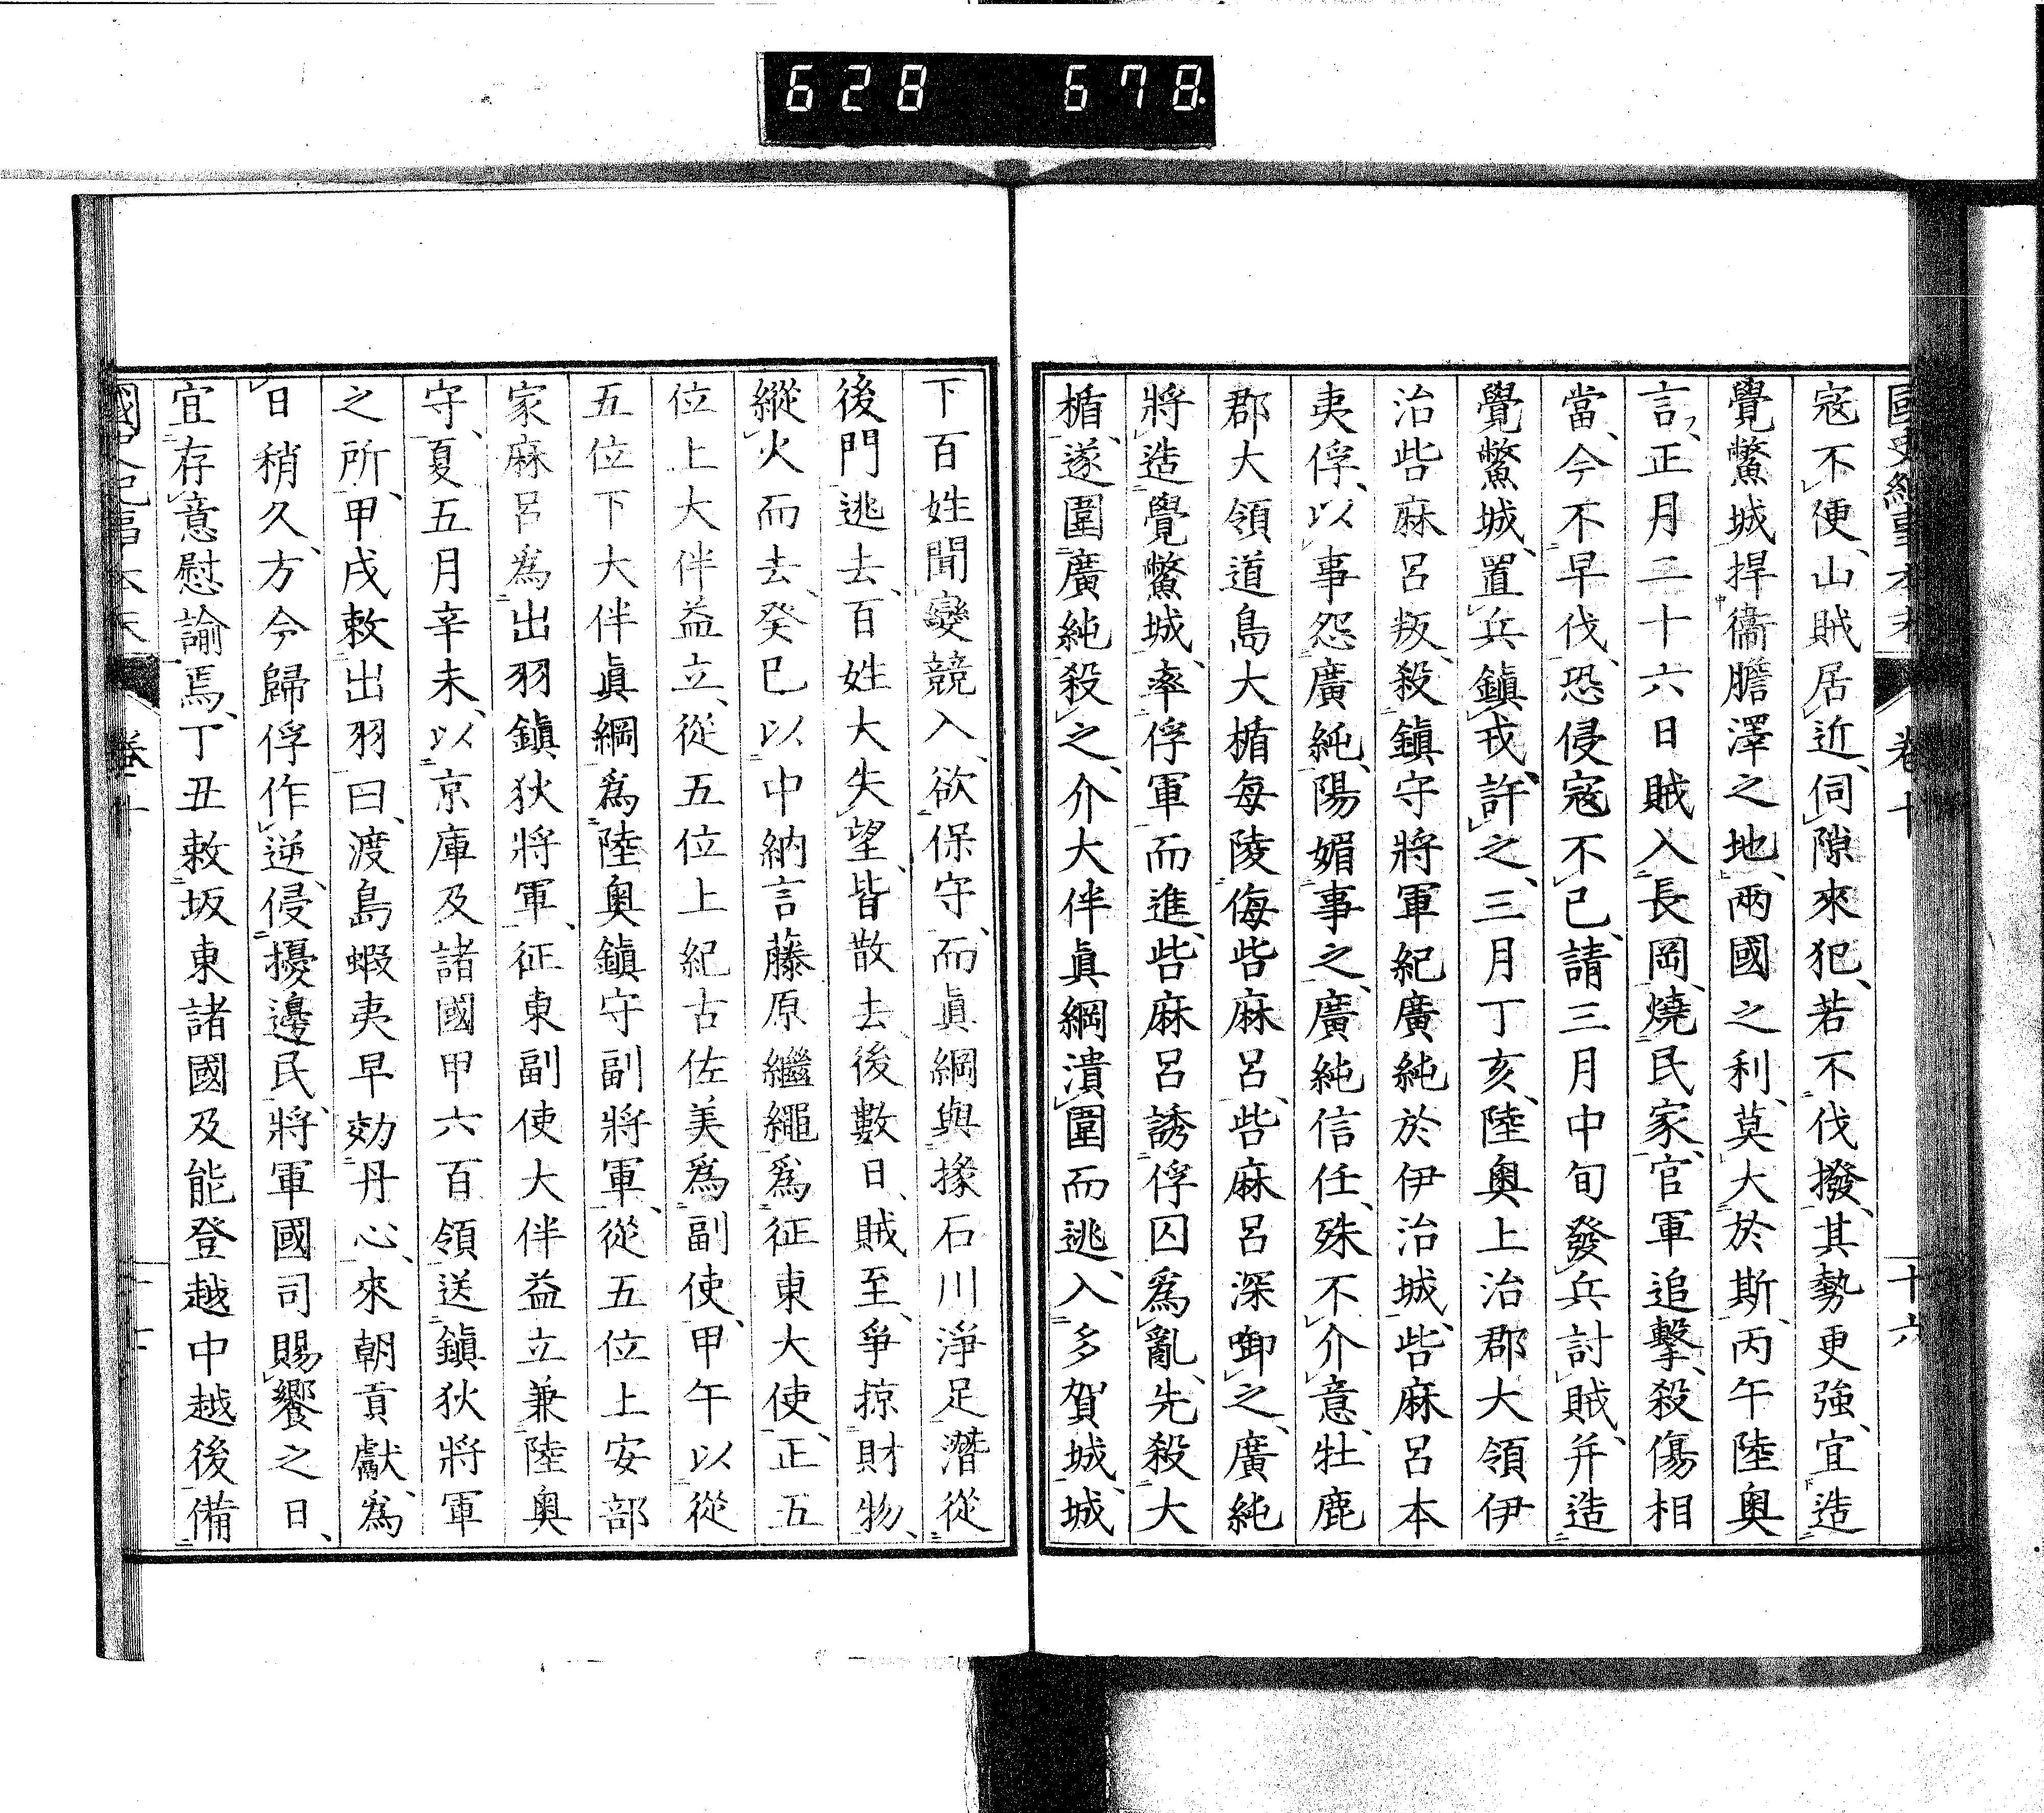 628 678.
國史紀事本末 卷十 十六
寇不便、山賊居近、伺隙來犯、若不伐撥、其勢更強、宜造
覺鱉城、捍衞膽澤之地、兩國之利、莫大於斯、丙午陸奧
言、正月二十六日賊入長岡、燒民家、官軍追擊、殺傷相
當、今不早伐、恐侵寇不已、請三月中旬發兵討賊、并造
覺鱉城、置兵鎮戎、許之、三月丁亥、陸奧上治郡大領伊
治呰麻呂叛、殺鎮守將軍紀廣純於伊治城、呰麻呂本
夷俘、以事怨廣純、陽媚事之、廣純信任、殊不介意、牡鹿
郡大領道島大楯每陵侮呰麻呂、呰麻呂深啣之、廣純
將造覺鱉城、率俘軍而進、呰麻呂誘俘囚爲亂、先殺大
楯、遂圍廣純殺之、介大伴眞綱潰圍而逃、入多賀城、城
下百姓聞變競入、欲保守、而眞綱與掾石川淨足潛從
後門逃去、百姓大失望、皆散去、後數日、賊至、爭掠財物、
縱火而去、癸巳以中納言藤原繼繩爲征東大使、正五
位上大伴益立、從五位上紀古佐美爲副使、甲午以從
五位下大伴眞綱爲陸奧鎮守副將軍、從五位上安部
家麻呂爲出羽鎮狄將軍、征東副使大伴益立兼陸奧
守、夏五月辛未、以京庫及諸國甲六百領送鎮狄將軍
之所、甲戌敕出羽曰、渡島蝦夷早効丹心、來朝貢獻、爲
日稍久、方今歸俘作逆、侵擾邊民、將軍國司賜饗之日、
宜存意慰諭焉、丁丑敕坂東諸國及能登越中越後備
國史紀事本末 卷十